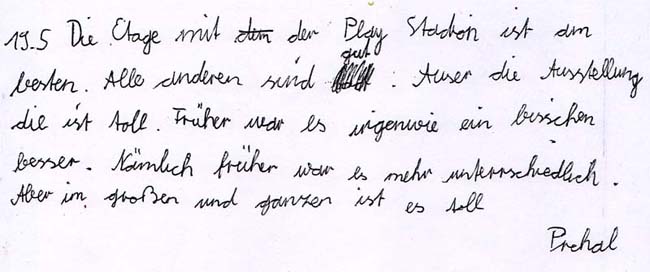 19.5 Die Etage mit den der Play Stadion ist am
besten. Alle anderen sind gut. Auser die Ausstellung
die ist toll. Früher war es irgenwie ein bisschen
besser. Nämlich früher war es mehr unterrschiedlich.
Aber im großen und ganzen ist es toll
Prehal